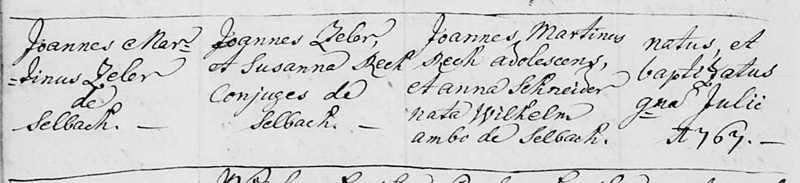 Joannes Mar=
=tinus Zeler
de
Selbach. —
Joannes Zeler,
et Susanna Rech
Conjuges de
Selbach. —
Joannes, Martinus
Rech adolescens,
et anna Schneider
nata Wilhelm
ambo de Selbach.
natus, et
baptizatus
9na Julii
1767. —